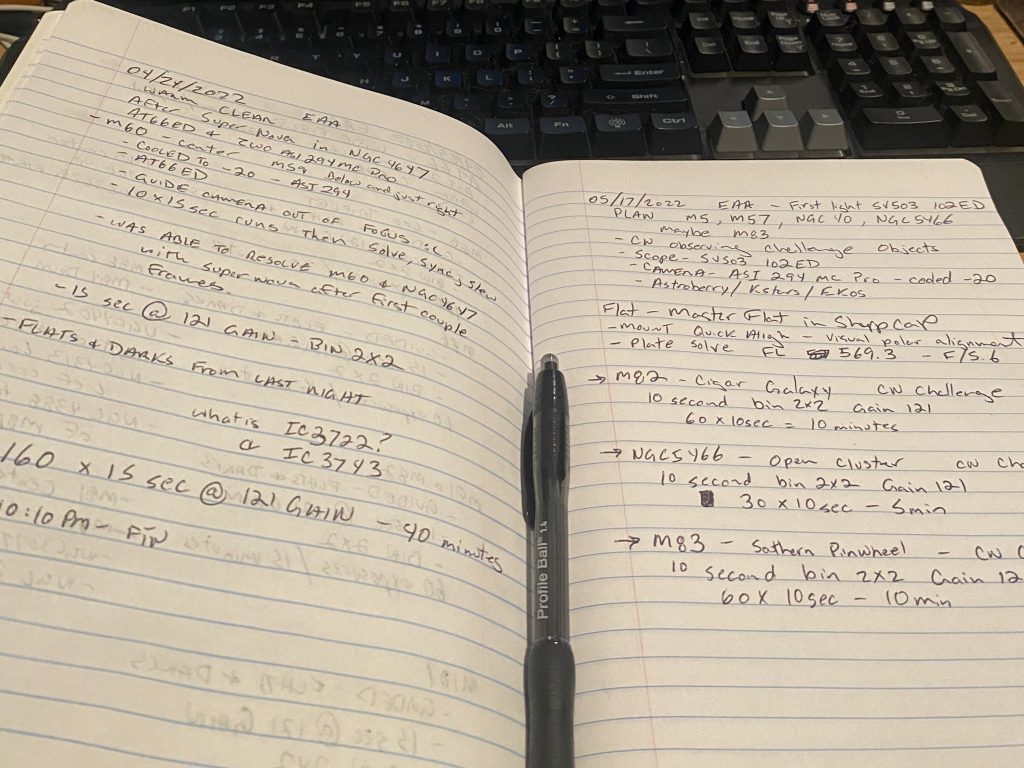 04/24/2022
WARM CLEAR EAA
AFTER SUPER NOVA in NGC 4647
AT66ED & TWO ASI 294 MC PRO
- M60 center M59 Below and just right
- COOLED TO -20 - ASI 294
- AT66ED
- GUIDE CAMERA OUT OF FOCUS :(
- 10 x 15 sec runs then solve, sync, slew
- WAS ABLE TO RESOLVE M60 & NGC4647
with super nova after first couple
Frames.
- 15 sec @ 121 GAIN - BIN 2x2
- FLATS & DARKS FROM LAST NIGHT
what is IC3722?
a IC3743
160 x 15 sec @ 121 GAIN - 40 minutes
10:10 Pm - FIN
05/17/2022 EAA - First light SV503 102ED
PLAN M5, M57, NGC 40, NGC 5466
maybe M83
- CN observing Challenge Objects
- Scope - SV503 102ED
- CAMERA - ASI 294 MC Pro - cooled -20
- Astroberry / Kstars / EKOS
Flat - Master Flat in SharpCap
- Mount Quick Align - visual polar alignment
- Plate solve FL 569.3 - F/5.6
→ M82 - Cigar Galaxy CN Challenge
10 second bin 2x2 Gain 121
60 x 10sec = 10 minutes
→ NGC5466 - Open Cluster CN Cha
10 second bin 2x2 Gain 121
30 x 10sec - 5min
→ M83 - Sothern Pinwheel - CN C
10 second bin 2x2 Gain 12
60 x 10sec - 10min
Profile Ball 1.4
F1 F2 F3 F4
Enter
Shift
Alt
Fn
Ctrl
Del
End